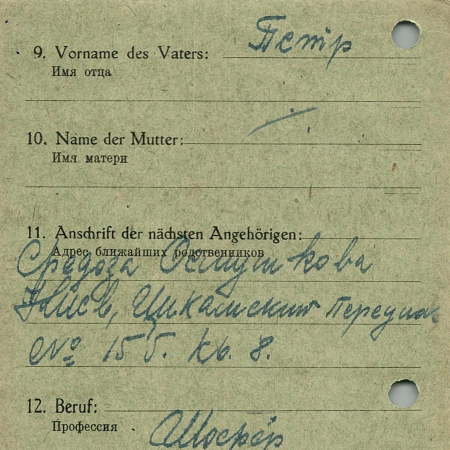 9. Vorname des Vaters: Петр
Имя отца
10. Name der Mutter:
Имя матери
11. Anschrift der nächsten Angehörigen:
Адрес ближайших родственников
Осмушкова
Киев,
№ 15 б. кв. 8.
12. Beruf:
Профессия Шофер